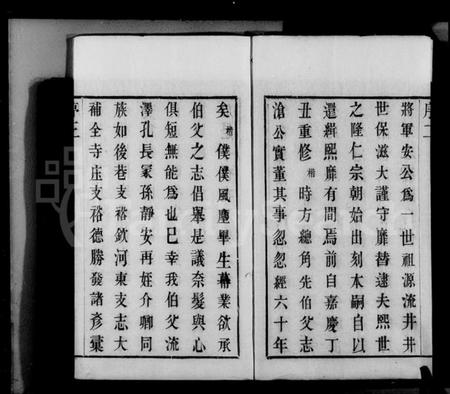 序二
將軍安公爲一世祖源流井井
世保滋大謹守靡替逮夫熙世
之隆仁宗朝始出刻本嗣自以
還緝熙靡有間焉前自嘉慶丁
丑重修楷時方總角先伯父志
滄公實董其事忽忽經六十年
矣楷僕僕風塵畢生幕業欲承
伯父之志倡舉是議奈髮與心
俱短無能爲也已幸我伯父流
澤孔長冢孫靜安再姪介卿同
族如後巷支裕欽河東支志大
補全寺庄支裕德勝發諸彥彙
序三